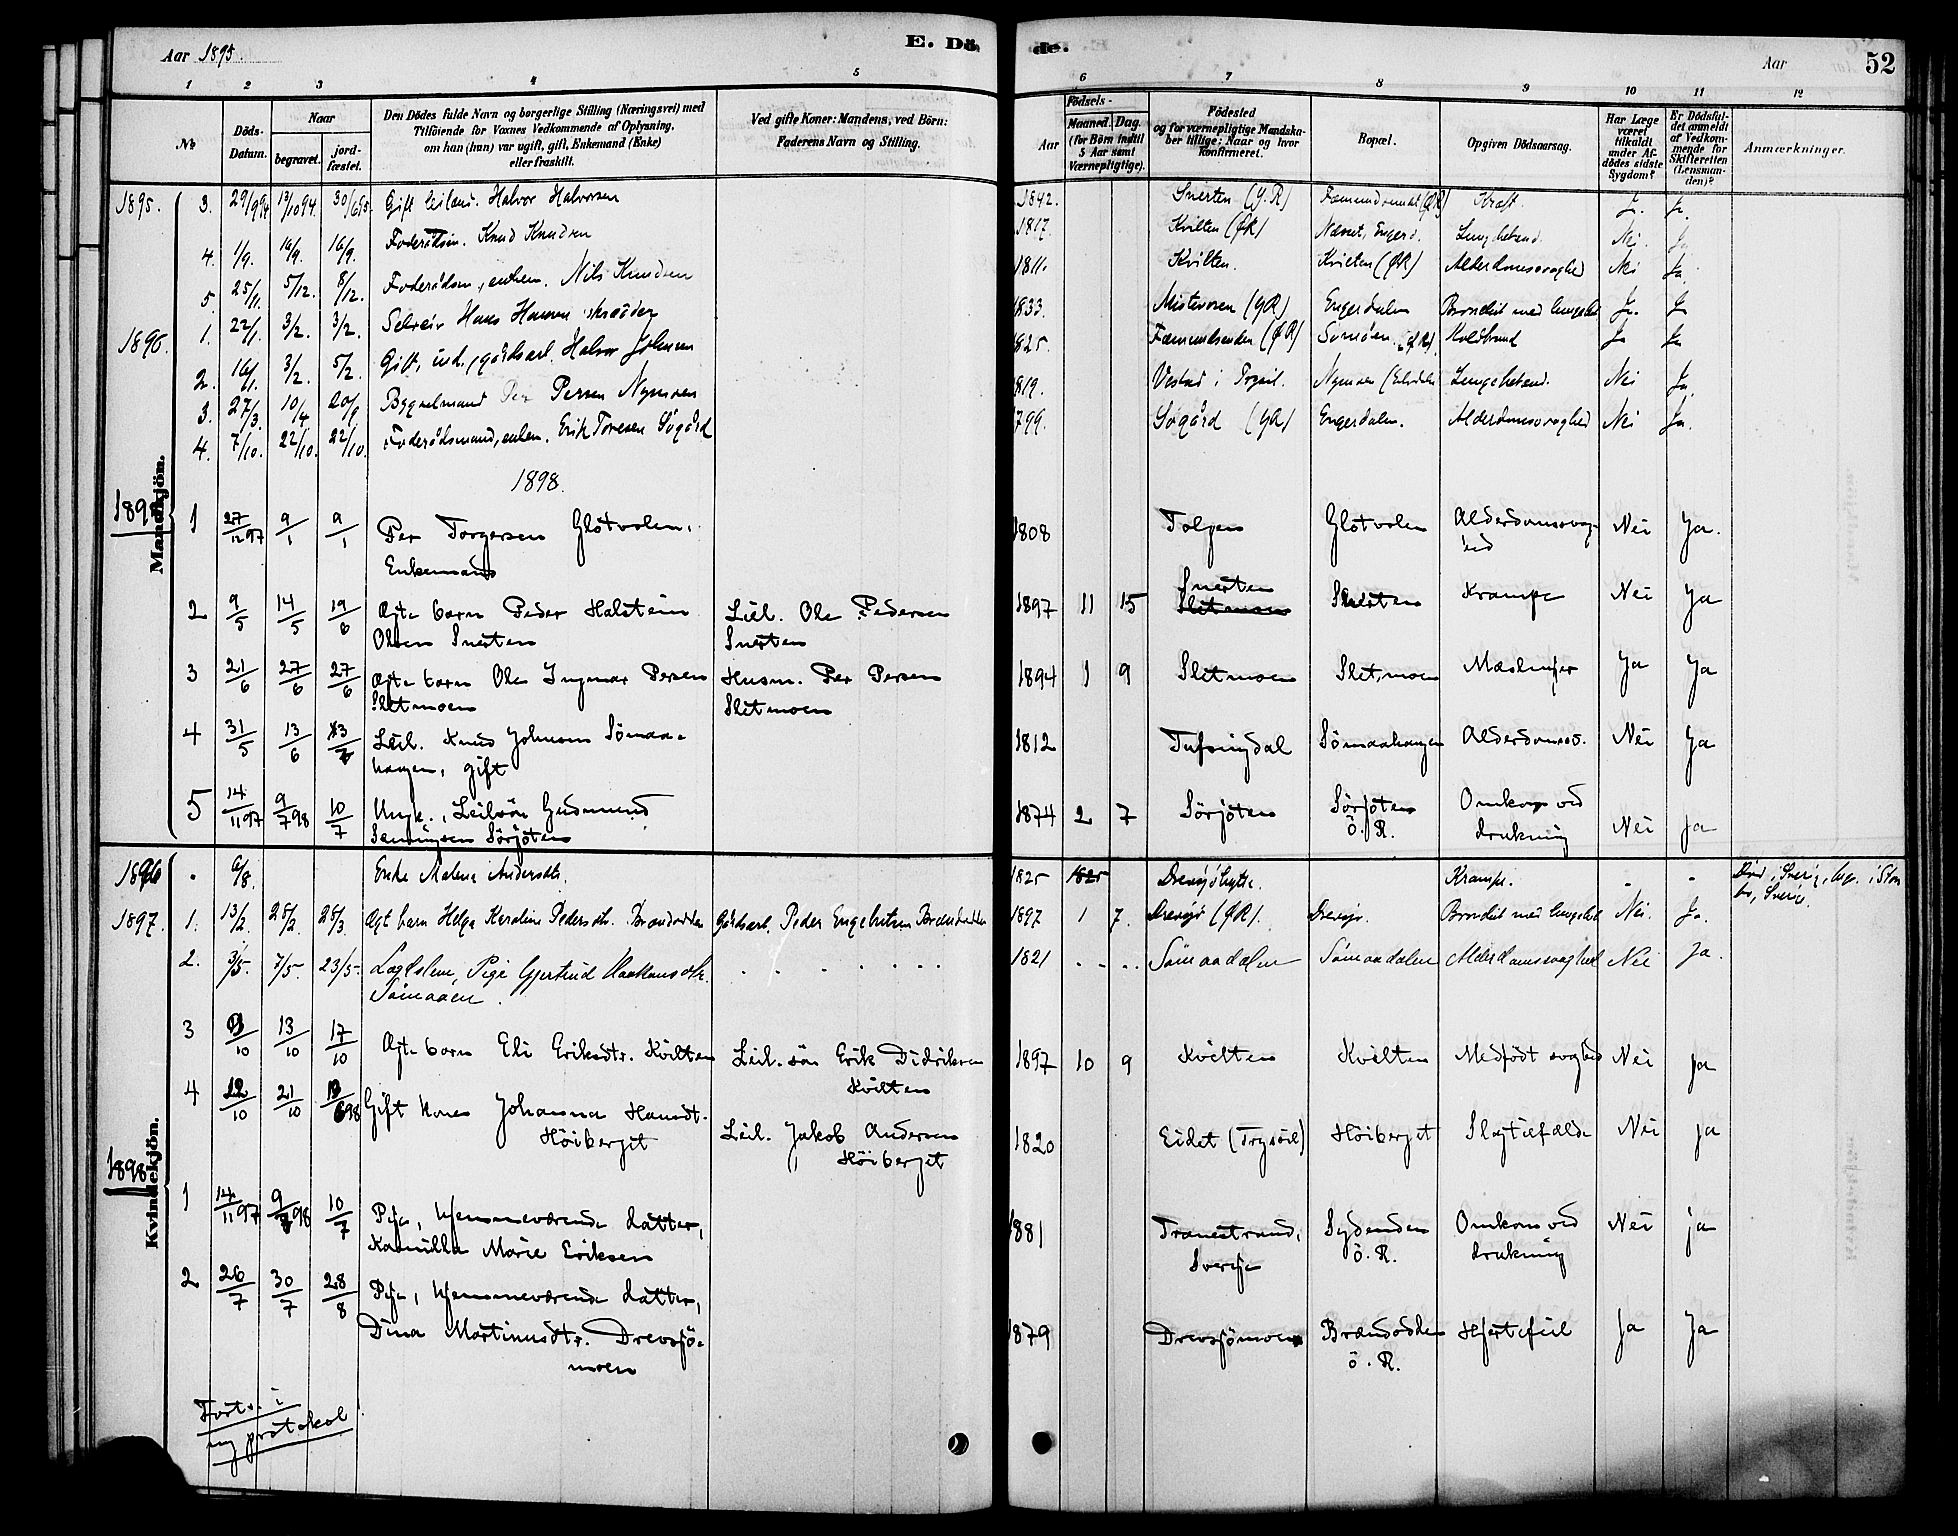 Aar 1895.
E. Dö
de.
Aar
52
1 2 3 4 5 6 7 8 9 10 11 12
No
Döds-Datum.
Naar
begravet.
jord-fæstet.
Den Dödes fulde Navn og borgerlige Stilling (Næringsvei) med
Tilföiende for Voxnes Vedkommende af Oplysning,
om han (hun) var ugift, gift, Enkemand (Enke)
eller fraskilt.
Ved gifte Koner: Mandens, ved Börn:
Faderens Navn og Stilling.
Födsels-
Aar
Maaned. Dag.
(for Börn indtil
5 Aar samt
Værnepligtige).
Födested
og for værnepligtige Mandska-
ber tillige: Naar og hvor
Konfirmeret.
Bopæl.
Opgiven Dödsaarsag.
Har Læge
været
tilkaldt
under Af-
dödes sidste
Sygdom?
Er Dödsfal-
det anmeldt
af Vedkom-
mende for
Skifteretten
(Lensman-
den)?
Anmærkninger.
Mandkjön.
1895. 3. 29/9 94 19/10 94. 30/6 95. Gift Halvor Halvorsen 1842. Snerten (Y.R) Kræft. Ja. Ja.
4. 1/9. 16/9. 16/9. Foderådsm. Knud Knudsen 1817. Kvilten (ØR) Engerd. Lungebetænd. Nei. Ja
5 25/11. 5/12. 8/12. Foderådsm., enkem. Nils Knudsen 1811. Kvilten. Kvilten (ØR) Alderdomssvaghed Nei Ja.
1896. 1. 22/1. 3/2. 3/2. Hans Hansen skrædder 1833. Mistervoren (YR) Engerdalen Bronchit med Ja. Ja
2. 16/1. 3/2. 5/2. Gift, ind., gårdsarb. Halvor Johnsen 1825. Femundsenden (ØR) (ØR). Koldbrand Ja Ja
3. 27/3. 10/4 20/9 Bygselmand Per Persen Nymoen 1819. Vestad i Trysil. Nymoen Lungebetænd. Nei Ja
4. 7/10. 22/10. 22/10. Foderådsmand, enkem. Erik Toresen Sögård 1799. Sögård (YR) Engerdalen. Alderdomssvaghed Nei Ja.
1898.
1 27/12 97 9/1 9/1 Per Torgersen Glötvolen, 1808 Tolgen Glötvolen Alderdomssvag- Nei Ja.
Enkemand
hed
2 9/5 14/5 19/6 Ægte barn Peder Halstein Leil. Ole Pedersen 1897 11 15 Snerten Snerten Krampe Nei Ja
Olsen Snerten Snerten
3 21/6 27/6 27/6 Ægte barn Ole Ingmar Persen Husm. Per Persen 1894 1 9 Sletmoen Sletmoen Mæslinger Ja Ja
Sletmoen Sletmoen
4 31/5 13/6 Leil. Knud Johnsen Sömaa- 1812 Tufsingdal Sömaahaugen Alderdomss. Nei Ja
haugen, gift
5 14/11 97 9/7 98 10/7 Ungk., Leilsön Gudmund 1874 2 7 Sörjöten Sörjöten Omkom ved Nei Ja
Sörjöten ö. R. drukning
Kvindekjön.
1896 . 6/8. Enke Malena Andersdtr. 1825 Drevsjöhytte. Krampe. - - Död i Sverig,
1897. 1. 13/2. 25/2. 25/3. Ægt barn Helga Karoline Pedersdtr. Brændodden Gårdsarb. Peder Engebretsen Brændodden 1897 1 7. Drevsjö (ØR). Drevsjö. Bronchit med Nei. Ja.
2. 3/5. 7/5. 23/5. Lægdslem, Pige Gjertrud Haakansdtr. 1821 Sömaadalen Sömaadalen Alderdomssvaghed Nei Ja.
Sömaaen.
3 13/10 17/10 Ægte barn Eli Eriksdtr. Kvilten Leil. sön Erik Didriksen 1897 10 9 Kvilten Kvilten Medfödt svaghed Nei Ja
Kvilten
4 12/10 21/10 Gift kone Johanna Hansdt. Leil. Jakob Andersen 1820 Eidet (Trysöil) Höiberget Slagtilfælde Nei Ja
Höiberget Höiberget
1898
1 14/11 97 9/7 98 10/7 Pige, hjemmeværende datter, 1881 Tranestrand, Sydenden Omkom ved Nei ja
Kamilla Marie Eriksen Sverige ö. R. drukning
2 26/7 30/7 28/8 Pige, hjemmeværende datter, 1879 Drevsjömoen Brændodden Hjertefeil Ja Ja
Dina Martinusdtr. Drevsjö- ö. R.
moen
Forts. i
ny protokol